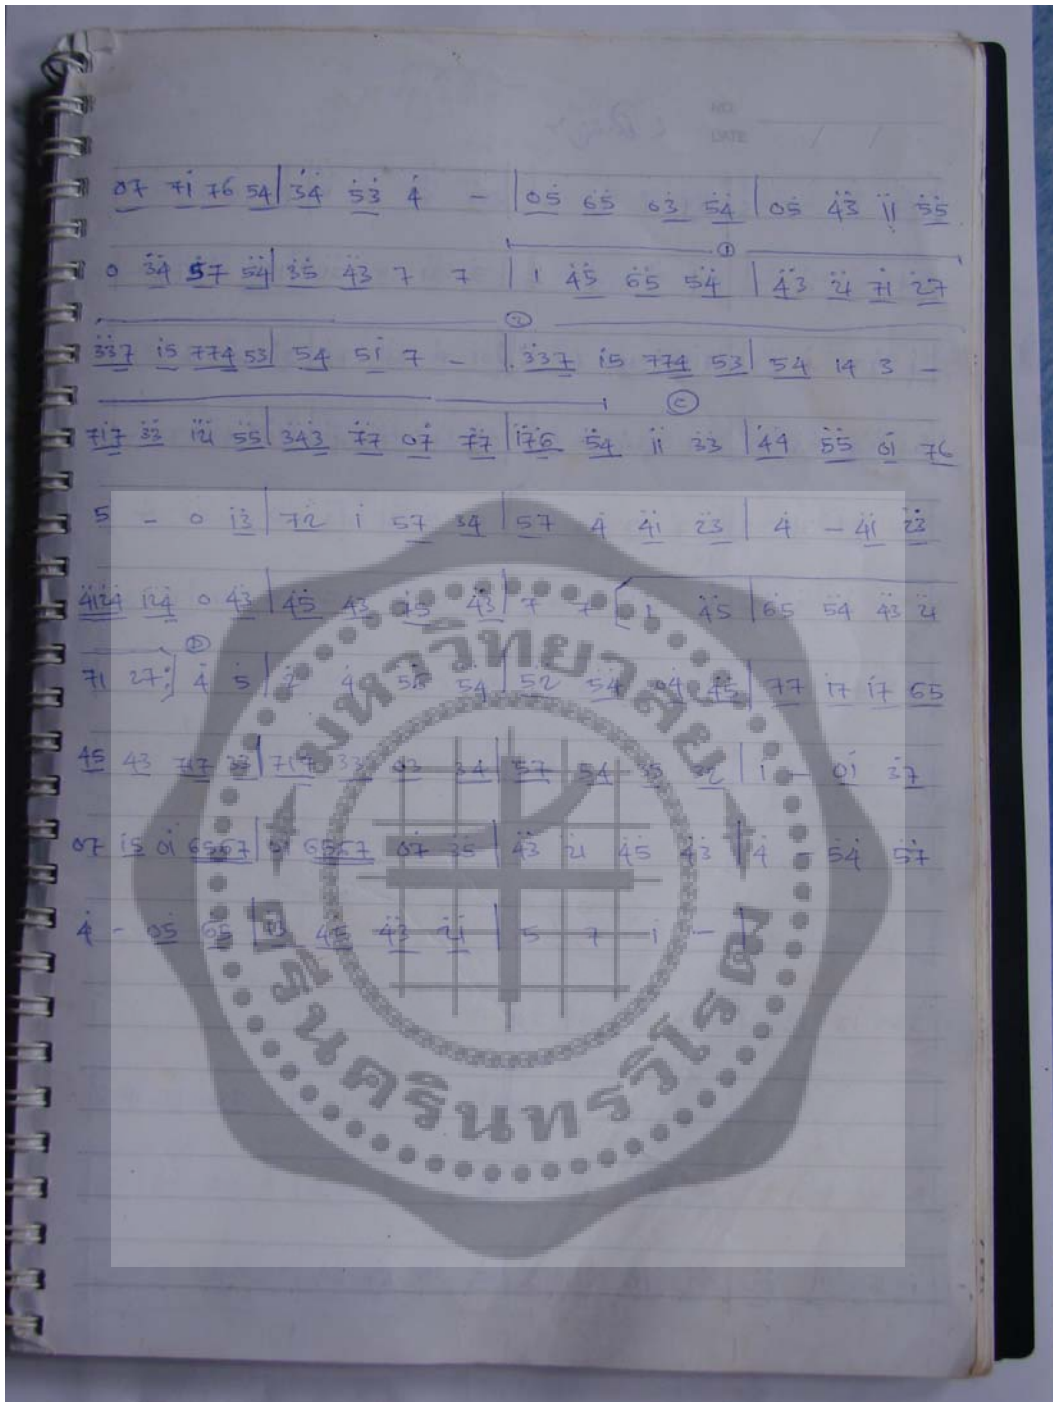 NO.
DATE / /
07 71̇ 76 54 | 3̇4̇ 5̇3̇ 4̇ – | 05̇ 6̇5̇ 03̇ 5̇4̇ | 05̇ 4̇3̇ 1̇1̇ 5̇5̇
①
0 3̇4̇ 5̇7 5̇4̇ | 3̇5̇ 4̇3̇ 7 7 | 1 4̇5̇ 6̇5̇ 5̇4̇ | 4̇3̇ 2̇1̇ 71̇ 2̇7
②
3̇3̇7 1̇5 774 53 | 54 51̇ 7 – | 3̇3̇7 1̇5 774 53 | 54 14 3 –
Ⓒ
71̇7 3̇3̇ 1̇2̇1̇ 5̇5̇ | 3̇4̇3̇ 7̇7̇ 07̇ 7̇7̇ | 1̇7̇6̇ 5̇4̇ 1̇1̇ 3̇3̇ | 4̇4̇ 5̇5̇ 01̇ 76
5 – 0 1̇3̇ | 72̇ 1̇ 57 34 | 57 4̇ 4̇1̇ 2̇3̇ | 4̇ – 4̇1̇ 2̇3̇
4̇1̇2̇4̇ 1̇2̇4̇ 0 4̇3̇ | 4̇5̇ 4̇3̇ 7̇5̇ 4̇3̇ | 7 7 [ 1 4̇5̇ | 6̇5̇ 5̇4̇ 4̇3̇ 2̇1̇
Ⓓ
71̇ 2̇7 :] 4̇ 5̇ | 2̇ 4̇ 5̇5̇ 5̇4̇ | 5̇2̇ 5̇4̇ 04̇ 4̇5̇ | 77 1̇7 1̇7 65
45 43 717 33 | 717 33 03 34 | 57 54 5 32 | 1̇ – 01̇ 3̇7
07 1̇5 01̇ 6557 | 01̇ 6557 07 35 | 4̇3̇ 2̇1̇ 4̇5̇ 4̇3̇ | 4̇ – 5̇4̇ 5̇7̇
4̇ – 05̇ 6̇5̇ | 4̇5̇ 4̇3̇ 2̇1̇ | 5 7 1̇ – |
มหาวิทยาลัย
ศรีนครินทรวิโรฒ